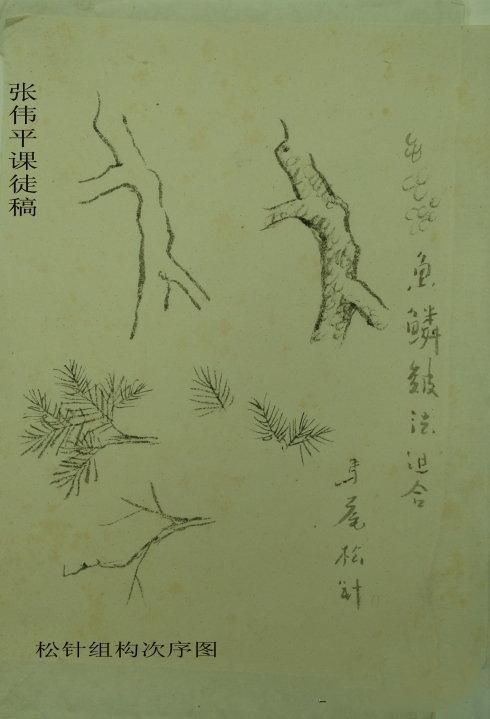 张伟平课徒稿
鱼鳞皴法组合
马尾松针
松针组构次序图